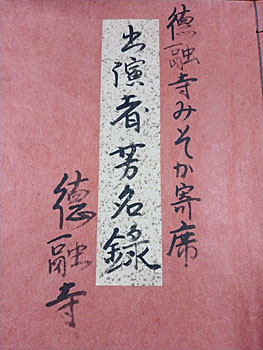 徳融寺みそか寄席
出演者芳名録
徳融寺